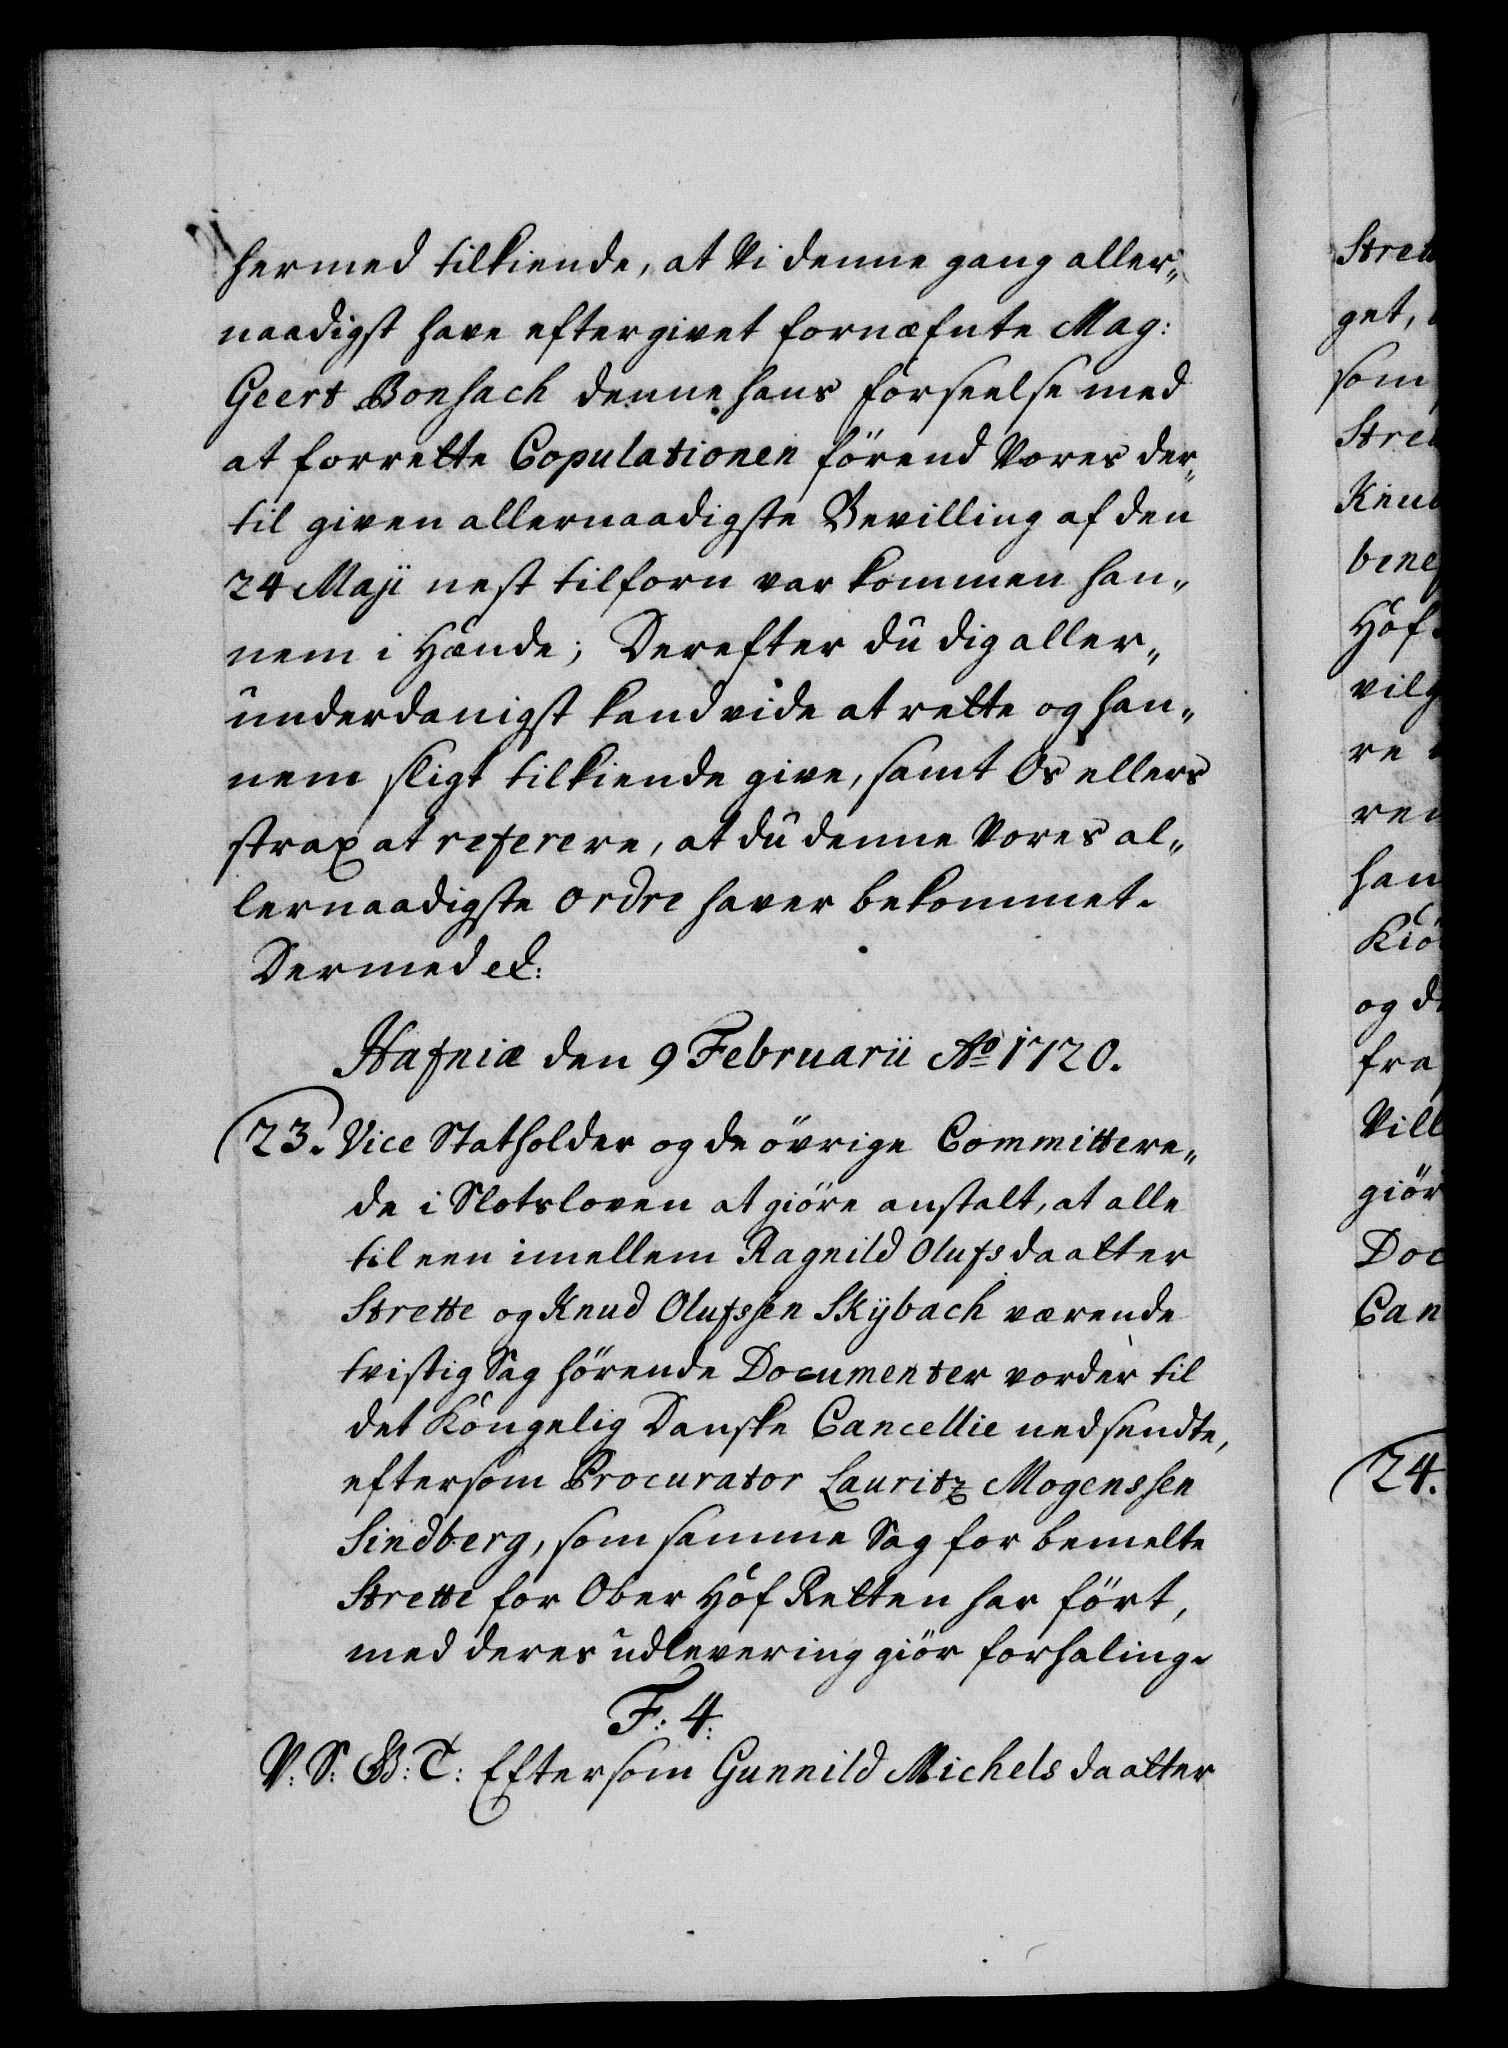 hermed tilkiende, at Vi denne gang aller„
naadigst have eftergivet fornæfnte Mag:
Geert Bonsach denne hans forseelse med
at forrette Copulationen förend Vores der„
til given allernaadigste Bevilling af den
24 Maji nest tilforn var kommen han„
nem i Hænde; Derefter du dig aller„
underdanigst kand vide at rette og han„
nem sligt tilkiende give, samt Os ellers
strax at referere, at du denne Vores al„
lernaadigste ordre haver bekommet.
Dermed ec:
Hafniæ den 9 Februarii Ao 1720.
23. Vice Statholder og de övrige Committere„
de i Slotsloven at giöre anstalt, at alle
til een imellem Ragnild Olufsdaatter
Strette og Knud Olufssen Skÿbach værende
tvistig Sag hörende Documenter vorder til
det Kongelig Danske Cancellie nedsendte,
eftersom Procurator Lauritz Mogenssen
Sindberg, som samme Sag for bemelte
Strette for Ober Hof Retten har fört,
med deres udlevering giör forhaling.
F: 4.
V: S: G: T: Eftersom Gunnild Michelsdaatter
get,
som
Höf
vilg
re
han
og d
fra
Vill
giör
Doc
Can
24.